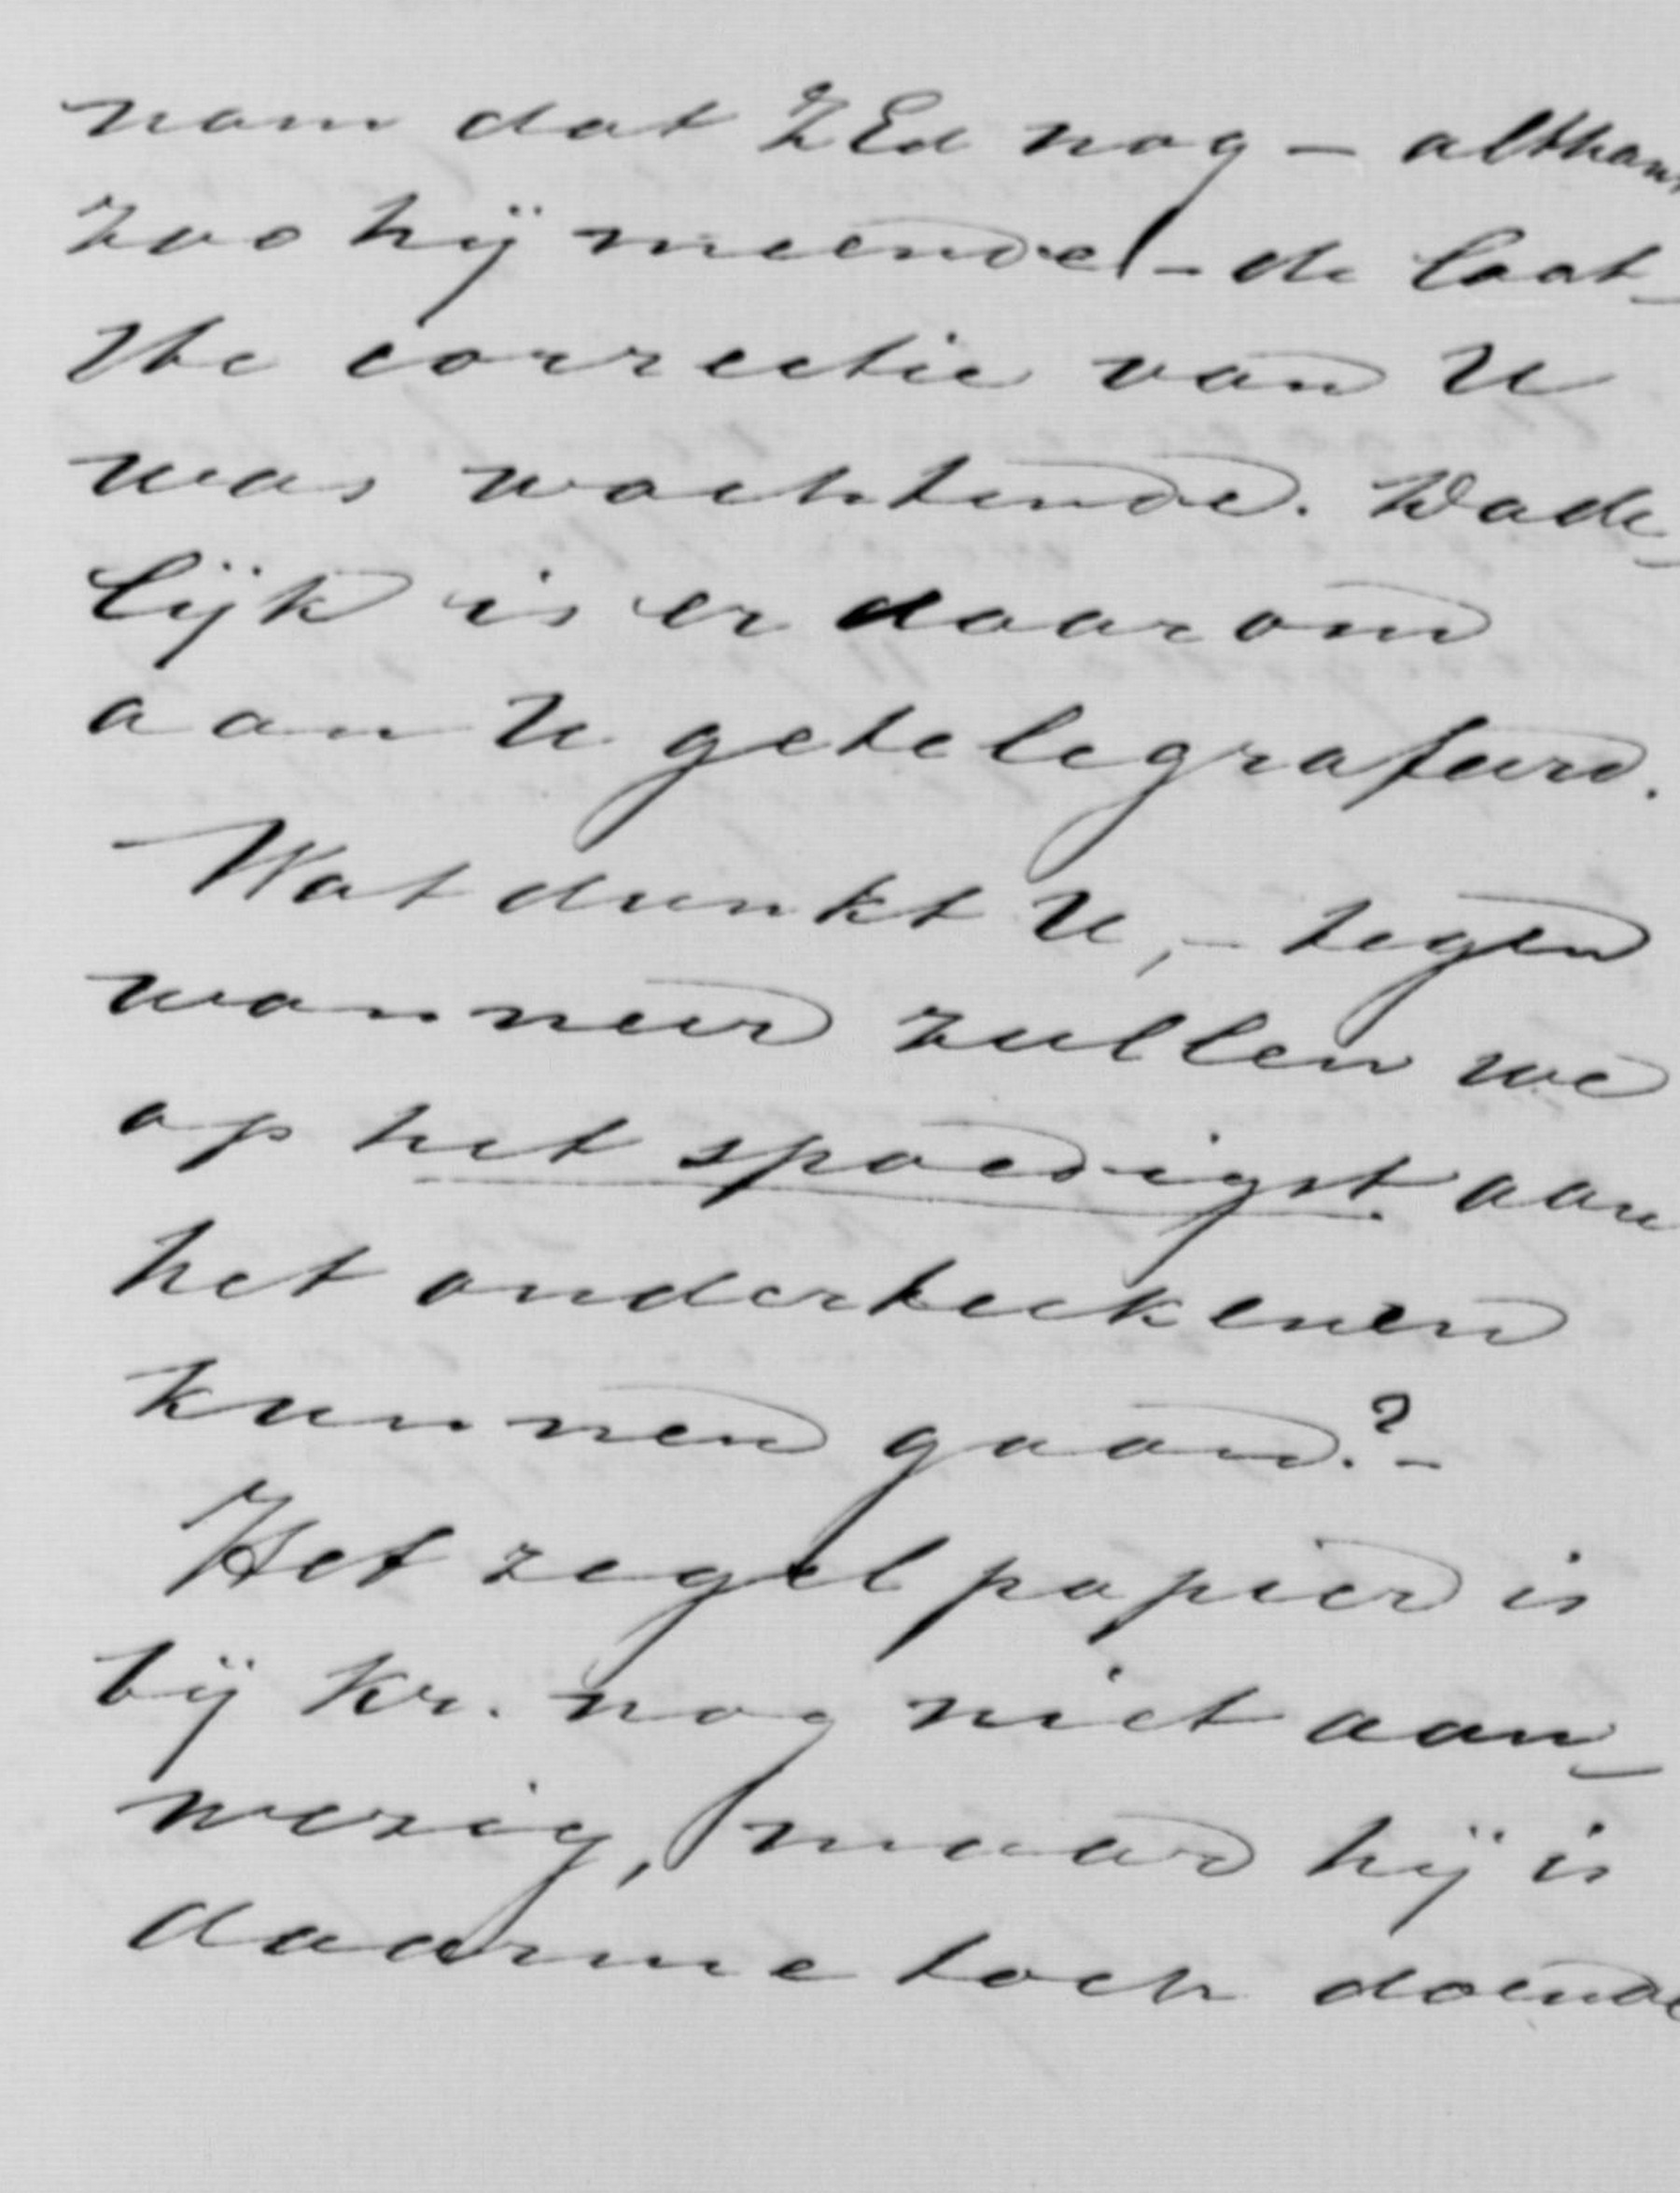 nam dat ZEd nog – althans
zoo hij meende – de laat-
ste correctie van U
was wachtende. Dade-
lijk is er daarom
aan U getelegrafeerd.
Wat dunkt U, – tegen
wanneer zullen we
op het spoedigst aan
het onderteekenen
kunnen gaan? –
Het zegelpapier is
bij Kr. nog niet aan-
wezig, maar hij is
daarme toch doende